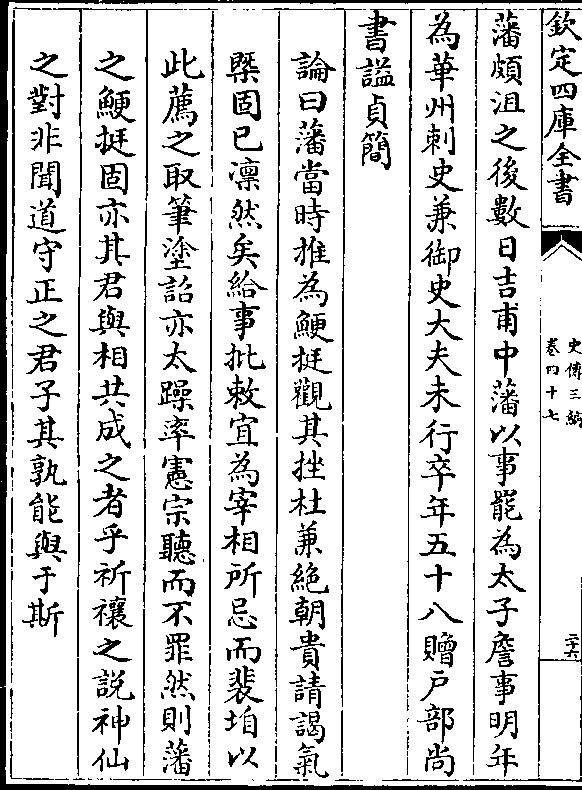 欽定四庫全書
史傳三編
卷四十七
二六
藩頗沮之後數日吉甫中藩以事罷為太子詹事明年
為華州刺史兼御史大夫未行卒年五十八贈戶部尚
書謚貞簡
論曰藩當時推為鯁挺觀其挫杜兼絶朝貴請謁氣
槩固已凜然矣給事批敕宜為宰相所忌而裴垍以
此薦之取筆塗詔亦太躁率憲宗聽而不罪然則藩
之鯁挺固亦其君與相共成之者乎祈禳之說神仙
之對非聞道守正之君子其孰能與于斯